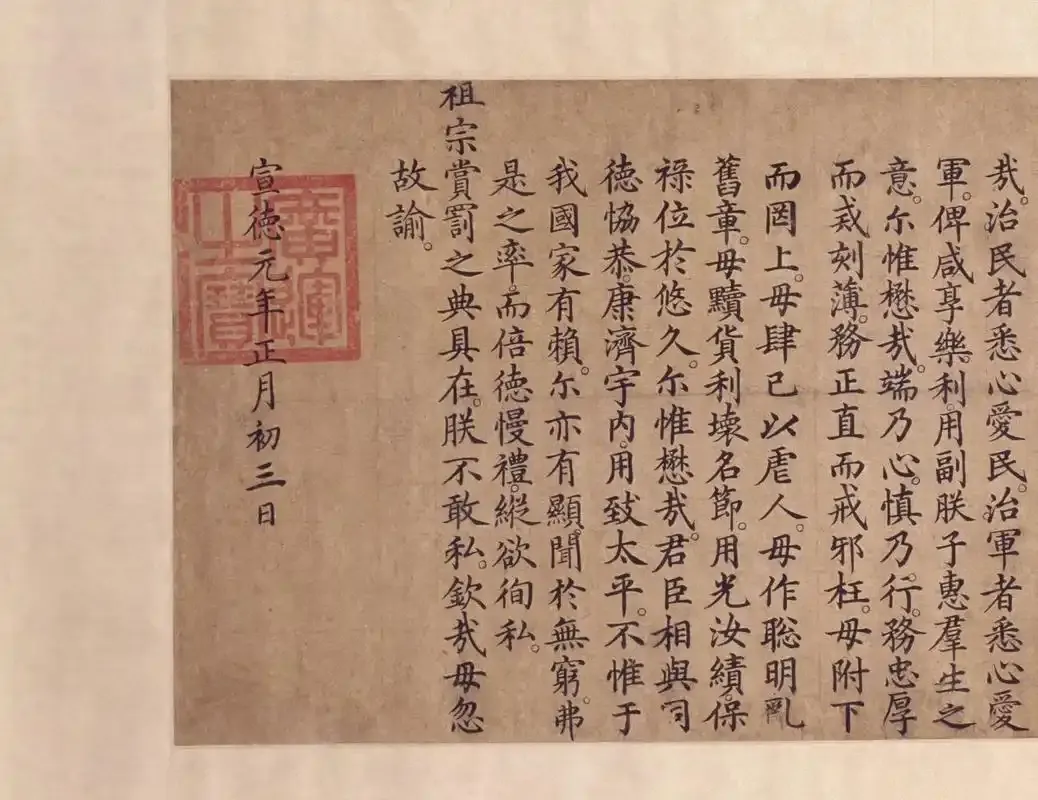 哉。治民者悉心愛民。治軍者悉心愛
軍。俾咸享樂利。用副朕子惠羣生之
意。尔惟懋哉。端乃心。慎乃行。務忠厚
而戒刻薄。務正直而戒邪枉。毋附下
而罔上。毋肆己以虐人。毋作聡明亂
舊章。毋黷貨利壊名節。用光汝績。保
祿位於悠久。尔惟懋哉。君臣相與同
徳恊恭。康濟宇内。用致太平。不惟于
我國家有賴。尔亦有顯聞於無窮。弗
是之率。而倍徳慢禮。縱欲徇私。
祖宗賞罰之典具在。朕不敢私。欽哉毋忽
故諭。
宣徳元年正月初三日
廣運之寶